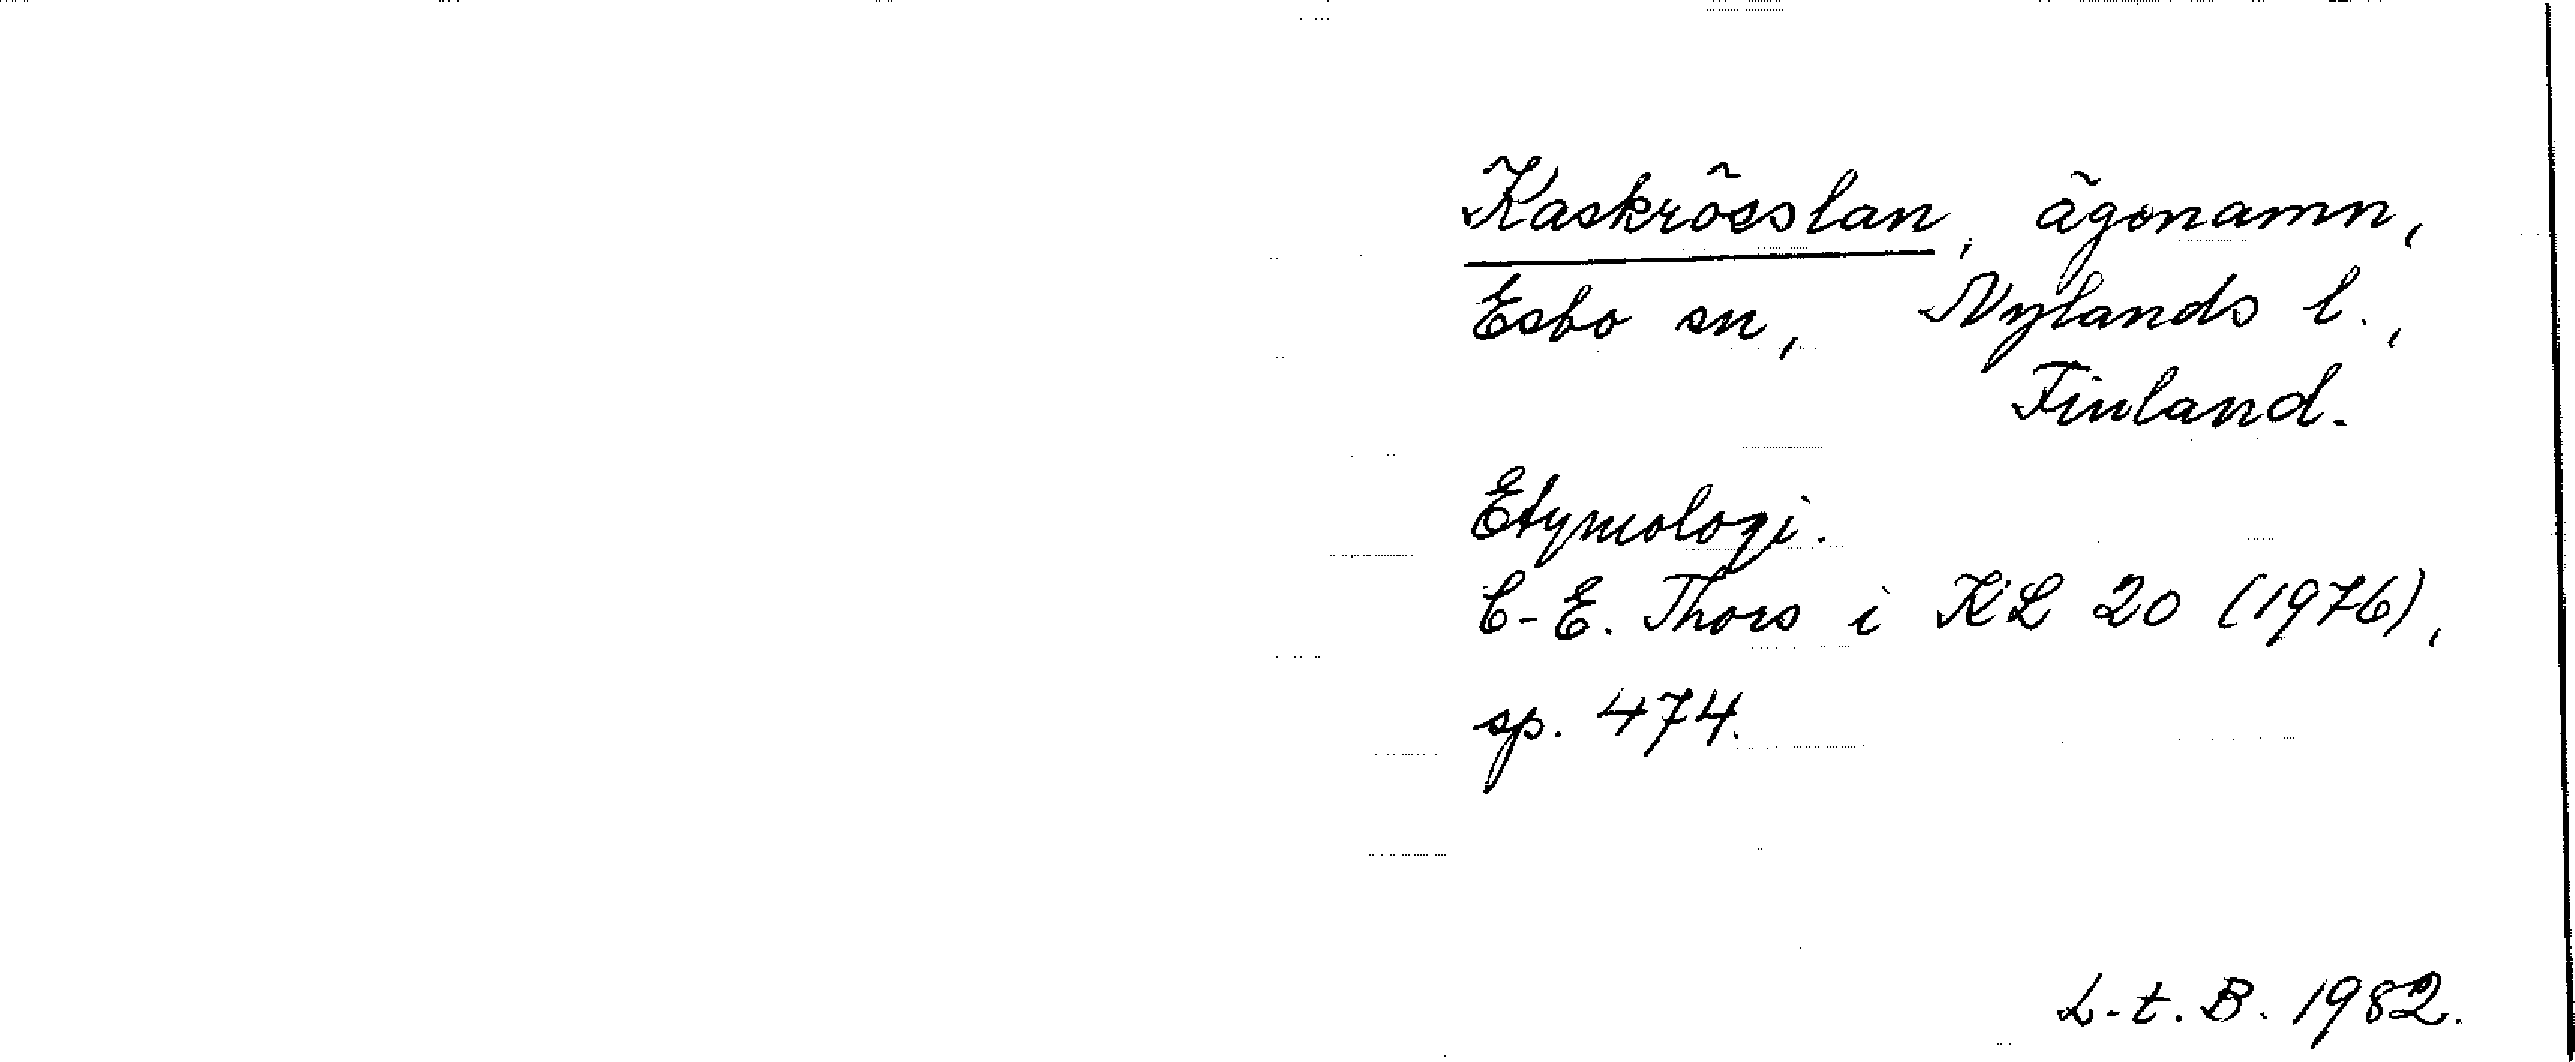 Kaskrösslan, ägonamn,
Esbo sn, Nylands l.,
Finland.
Etymologi.
C-E. Thors i KL 20 (1976),
sp. 474.
L-t. B. 1982.